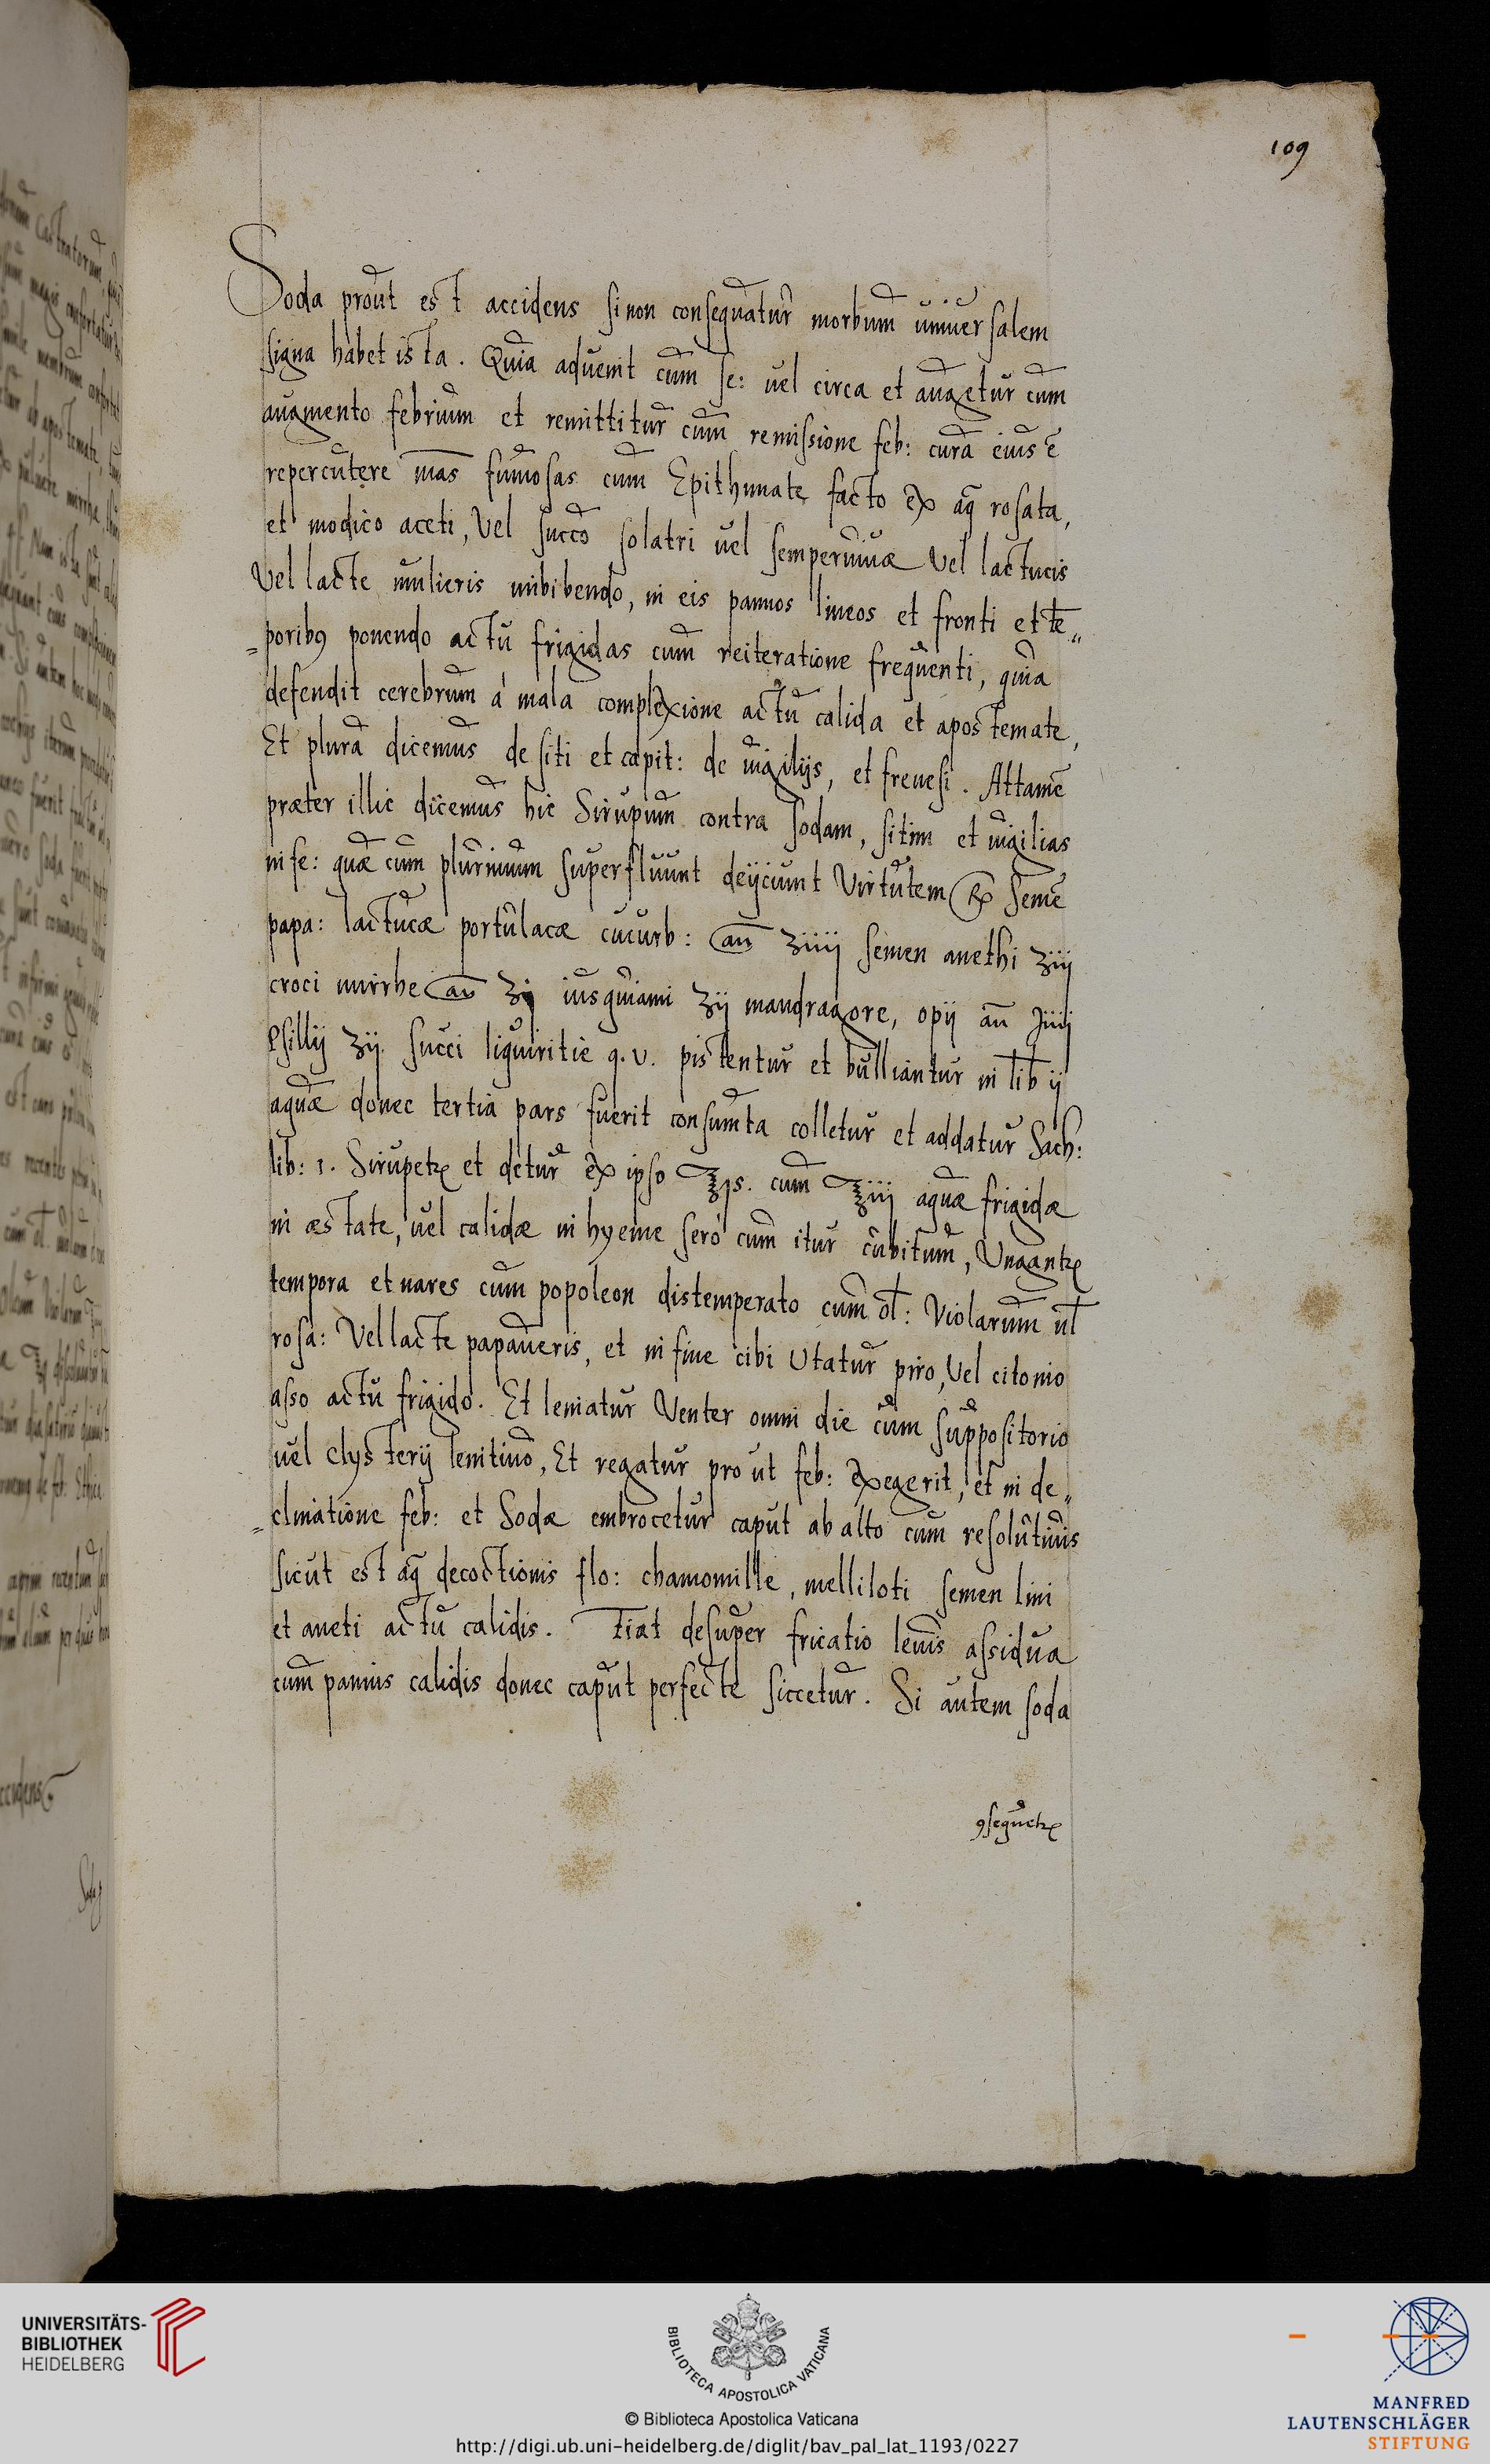 109
Soda prout est accidens si non consequatur morbum universalem
signa habet ista. Quia advenit cum fe: vel circa et augetur cum
augmento febrium et remittitur cum remissione feb: cura eius ē
repercutere mās fumosas cum Epithimate facto ex aq̄ rosata,
et modico aceti, Vel succo solatri vel sempervivæ Vel lactucis
Vel lacte mulieris imbibendo, in eis pannos lineos et fronti et tē„
„poribꝰ ponendo actu frigidas cum reiteratione frequenti, quia
defendit cerebrum á mala complexione actu calida et apostemate,
Et plura dicemus de siti et capit: de vigilijs, et frenesi. Attamē
præter illic dicemus hic Sirupum contra sodam, sitim et vigilias
in fe: quæ cum plurimum superfluunt deijciunt Virtutem ℞ Semē
papa: lactucæ portulacæ cucurb: an̄ ʒiiij semen anethi ʒiij
croci mirrhe an̄ ʒj iusquiami ʒij mandragore, opij an̄ ʒiiij
Psillij ʒij. succi liquiritie q.v. pistentur et bulliantur in lib ij
aquæ donec tertia pars fuerit consumta colletur et addatur Sach:
lib: 1. Sirupetꝛ et detur ex ipso ℥js. cum ℥iij aquæ frigidæ
in æstate, vel calidæ in hyeme sero cum itur cubitum, Ungantꝛ
tempora et nares cum popoleon distemperato cum ol: Violarum ul
rosa: Vel lacte papaveris, et in fine cibi Utatur piro, Vel citonio
asso actu frigido. Et leniatur Venter omni die cum suppositorio
vel clysterij lenitivo, Et regatur prout feb: exegerit, et in de„
„clinatione feb: et Sodæ embrocetur caput ab alto cum resolutivis
sicut est aq̄ decoctionis flo: chamomille, melliloti semen lini
et aneti actu calidis. Fiat desuper fricatio lenis assidua
cum pannis calidis donec caput perfecte siccetur. Si autem soda
ꝯsequetꝛ
UNIVERSITÄTS-
BIBLIOTHEK
HEIDELBERG
BIBLIOTECA APOSTOLICA VATICANA
© Biblioteca Apostolica Vaticana
http://digi.ub.uni-heidelberg.de/diglit/bav_pal_lat_1193/0227
MANFRED
LAUTENSCHLÄGER
STIFTUNG